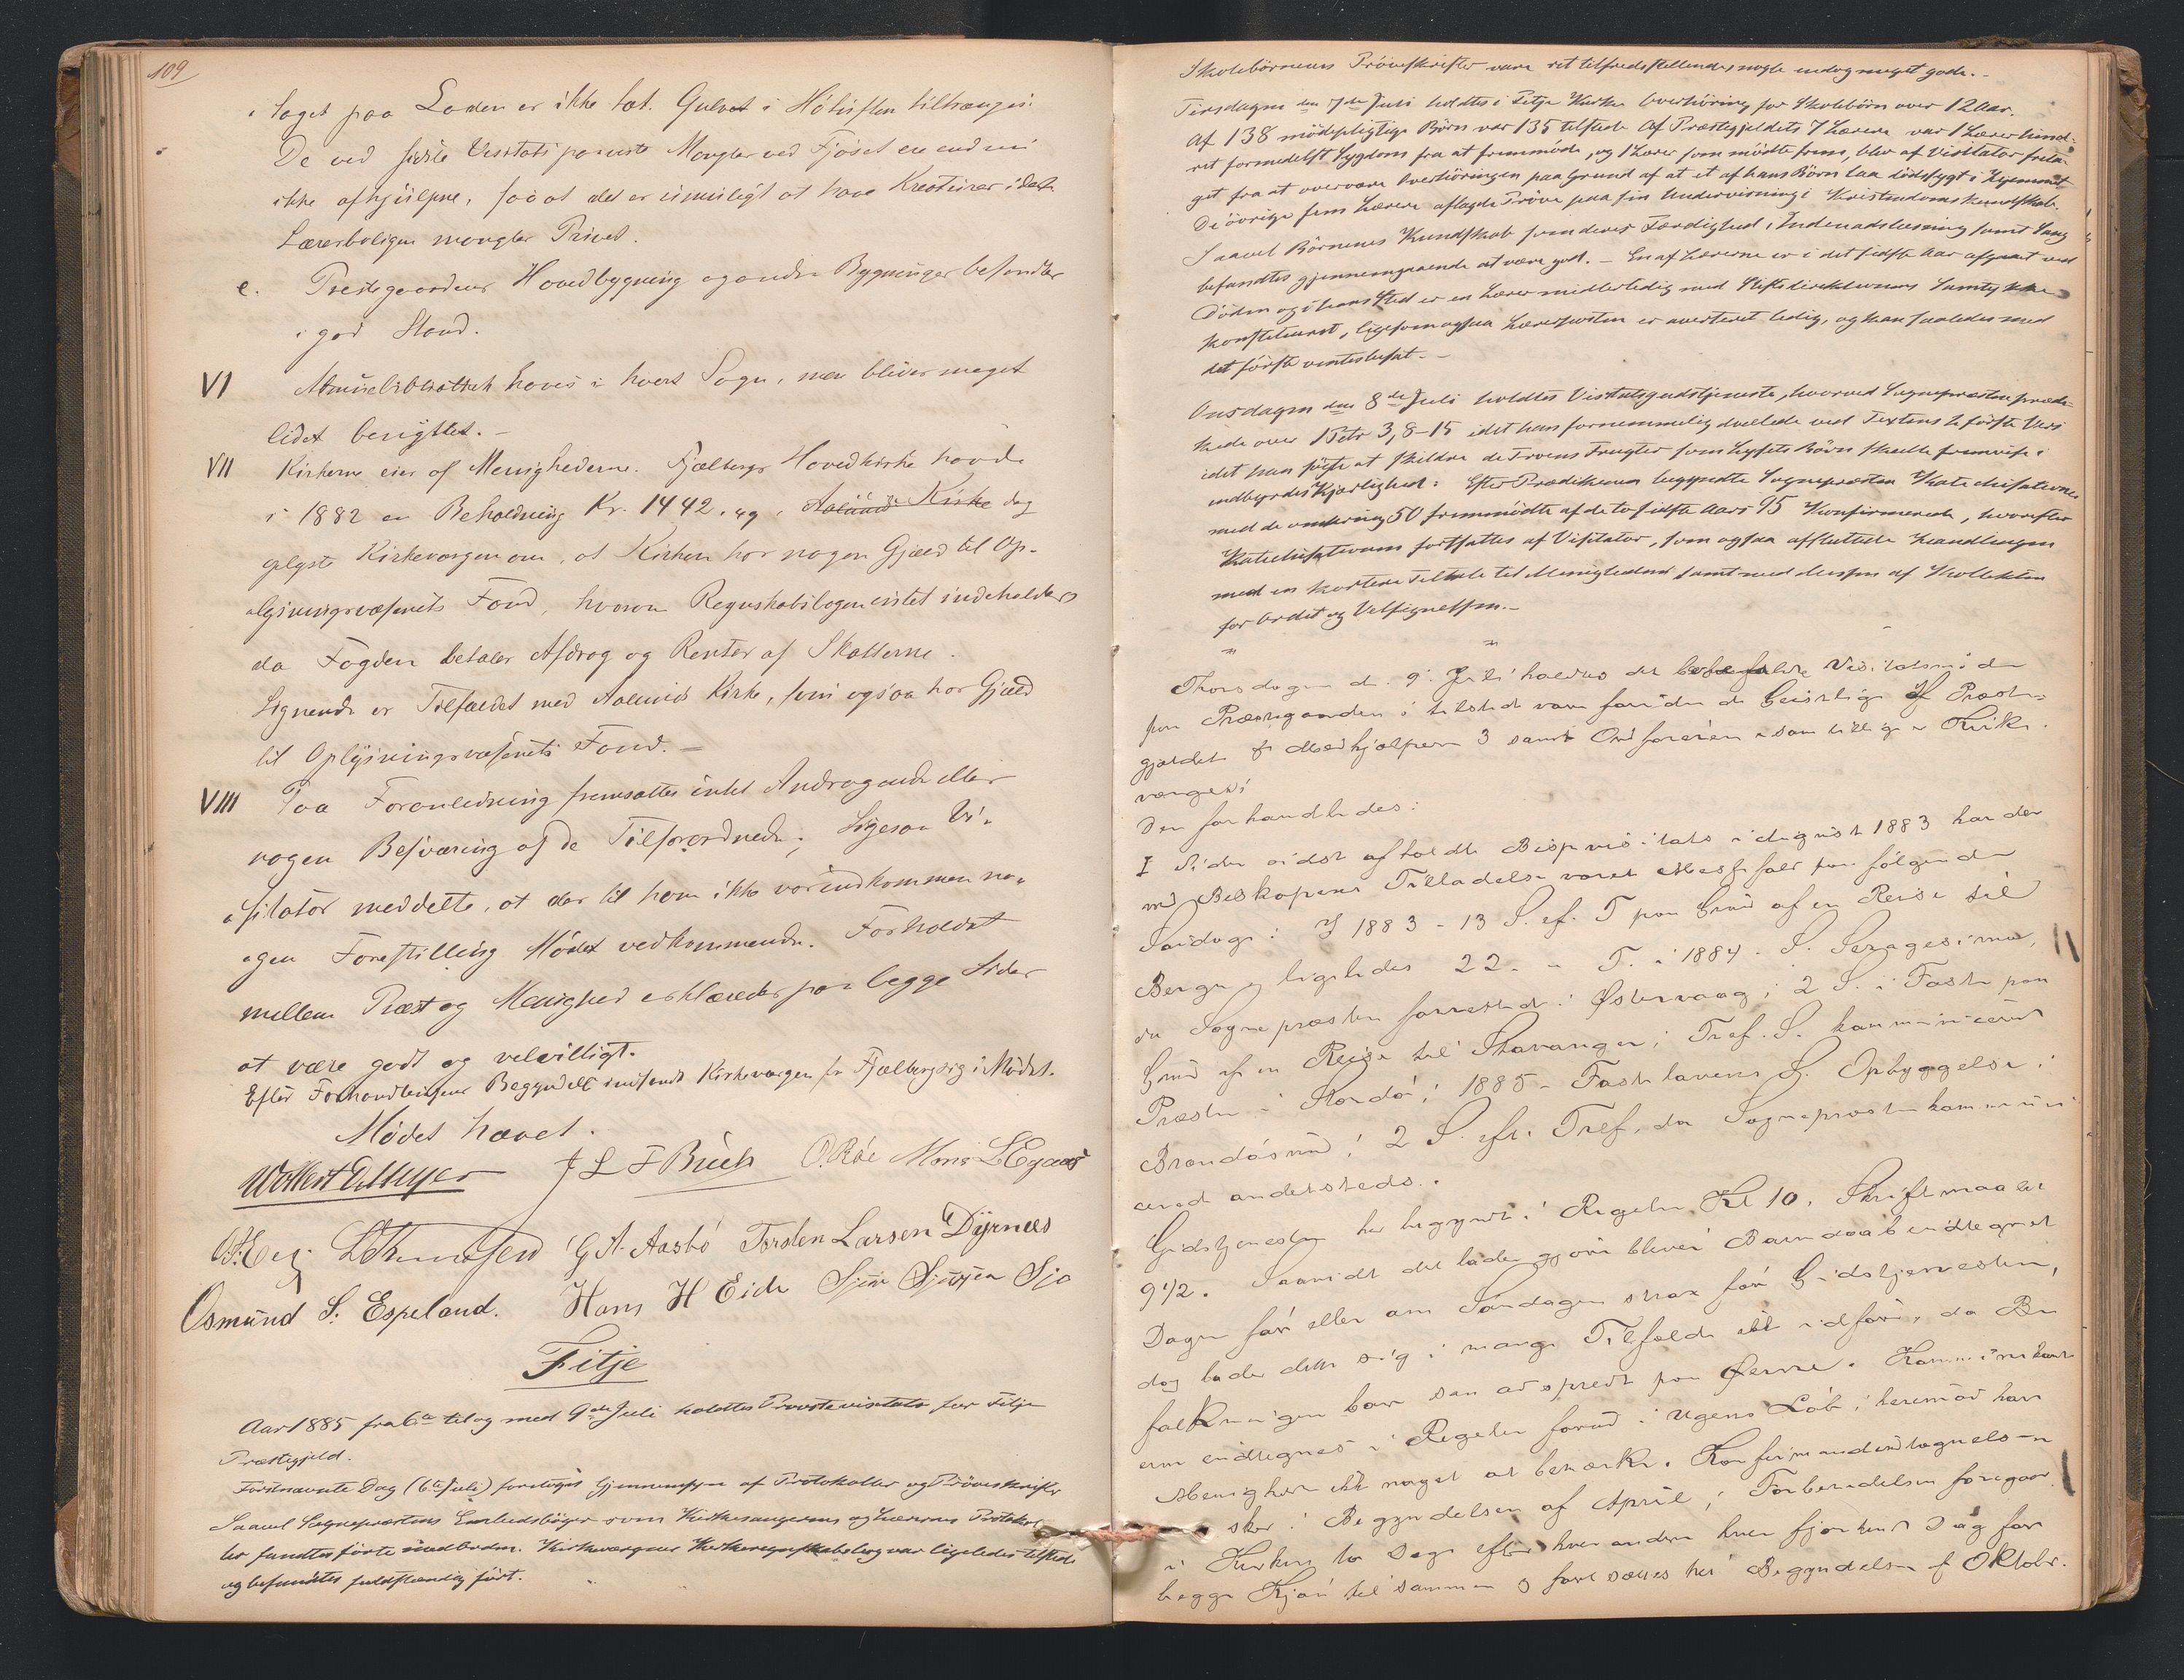 109
i taget paa Loden er ikke tæt. Gulvet i Höloften tiltrænges
De ved sidste Visitats paaviste Mangler ved Fjöset ere endnu
ikke afhjülpne, saa at det er umuligt at have Kreaturer i dette
Lærerboligen mangler Privet.
e. Præstegaardens Hovedbygning og andre Bygninger befandtes
i god Stand.
VI Almuebibliothek haves i hvert Sogn, men bliver meget
lidet benyttet. –
VII Kirkerne eies af Menighederne. Fjælbergs Hovedkirke havde
i 1882 en Beholdning Kr. 1442.49, Aalunds Kirke dog
oplyste Kirkeværgen om, at Kirken har nogen Gjæld til Op-
lysningsvæsenets Fond, hvorom Regnskabsbogen intet indeholder
da Fogden betaler Afdrag og Renter af Skatterne.
Lignende er Tilfældet med Kirke, som ogsaa har Gjæld
til Oplysningsvæsenets Fond. –
VIII Paa Foranledning fremsattes intet Andragende eller
nogen Besværing af de Tilforordnede; ligesom Vi-
sitator meddelte, at der til ham ikke var indkommen no-
gen Forestilling Mödet vedkommende. Forholdet
mellem Præst og Menighed erklæredes paa begge Sider
at være godt og velvilligt.
Efter Forhandlingens Begyndelse indfandt Kirkeværgen for Fjælberg sig i Mödet.
Mödet hævet.
J L F Büch O. Röe Mons L Egaas
G A. Aasbö Torsten Larsen Dyrnæs
Osmund S. Espeland. Hans H Eide Sjur Sjursen Sjo
Fitje
Aar 1885 fra 6te til og med 9de Juli holdtes Provstevisitats for Fitje
Præstegjeld.
Förstnævnte Dag (6te Juli) foretoges Gjennemsyn af Protokoller og Pröveskrifter
Saavel Sognepræstens Embedsböger som Kirkesangerens og Lærernes Protokol
ler fandtes förte med Orden. Kirkeværgens Kirkeregnskabsbog var ligeledes tilstede
og befandtes fuldstændig fört.
Skolebörnenes Pröveskrifter vare ret tilfredsstillende, nogle endog meget gode. –
Tirsdagen den 7de Juli holdtes i Fitje Kirke Overhöring for Skolebörn over 12 Aar.
Af 138 mödepligtige Börn var 135 tilstede. Af Præstegjeldets 7 Lærere var 1 Lærer hind-
ret formedelst Sygdom fra at fremmöde, og 1 Lærer som mödte frem, blev af Visitator frita-
get fra at overvære Overhöringen paa Grund af at et af hans Börn laa dödssygt i Hjemmet
De övrige fem Lærere aflagde Pröve paa sin Undervisning i Kristendomskundskab.
Saavel Börnenes Kundskab som deres Færdighed i Indenadslæsning samt Sang
befandtes gjennemgaaende at være god. – En af Lærerne er i det sidste Aar afgaaet ved
Döden og i hans Sted er en Lærer midlertidig med Stiftsdirektionens Samtykke
konstitueret, ligesom ogsaa Lærerposten er averteret ledig, og kan saaledes med
det förste ventes besat. –
Onsdagen den 8de Juli holdtes Visitatsgudstjeneste, hvorved Sognepræsten præde-
kede over 1 Petr 3, 8–15 idet han fornemmelig dvælede ved Textens förste Vers
idet han sögte at skildre de Troens Frugter som Lysets Börn skulle fremvise i
indbyrdes Kjærlighed. Efter Prædikenen begyndte Sognepræsten Katechisationen
med de omkring 50 fremmödte af de to sidste Aars 95 Konfirmerede, hvorefter
Katechisationen fortsattes af Visitator, som ogsaa afsluttede Handlingen
med en kortere Tiltale til Menigheden samt med Messen af Kollekten
for Ordet og Velsignelsen. –
Thorsdagen d. 9. Juli holdtes det befalede Visitatsmöde
paa Præstegaarden; tilstede vare foruden de Geistlige af Præste-
gjældet Medhjælpere 3 samt Ordföreren som tillige er Kirke-
værge.
Der forhandledes:
I Siden sidst afholdte Bispevisitats i August 1883 har der
med Biskopens Tilladelse været Messefald paa fölgende
Söndage: I 1883 – 13 S. ef. T paa Grund af en Reise til
Bergen, ligeledes 22. – " T. i 1884 – S. Sexagesima,
da Sognepræsten forrettede i Östervaag; 2 S. i Faste paa
Grund af en Reise til Stavanger; Tref. S. kommunicerede
Præsten i Stordö; 1885 – Fastelavens S. Opbyggelse i
Brandösund; 2 S. eft. Tref, da Sognepræsten kommuni-
cered andetsteds.
Gudstjenesten her begyndt i Regelen Kl 10. Skriftmaalet
9 1/2. Saavidt det lader gjöre bliver Barndaab indtegnet
Dagen för eller om Söndagen strax för Gudstjenesten,
dog lader dette sig i mange Tilfælde ikke udföre, da Be
folkningen bor saa adspredt paa Öerne. Kommunikan
erne indtegnes i Regelen forud i Ugens Löb; herimod har
Menigheden ikke noget at bemærke. Konfirmandindtegnelsen
sker i Begyndelsen af April; Forberedelsen foregaar
i Kirken to Dage efter hverandre hver fjortende Dag for
begge Kjön tilsammen og fortsættes til Begyndelsen af Oktober.